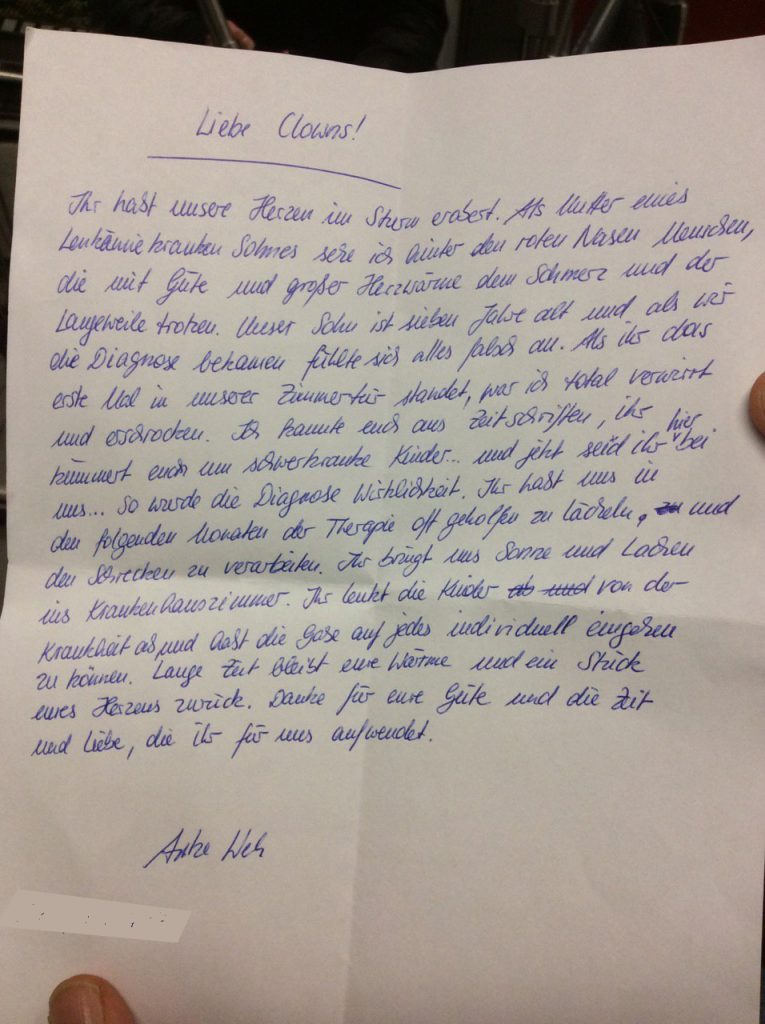 Liebe Clowns!
Ihr habt unsere Herzen im Sturm erobert. Als Mutter eines
Leukämiekranken Sohnes sehe ich hinter den roten Nasen Menschen,
die mit Güte und großer Herzwärme dem Schmerz und der
Langeweile trotzen. Unser Sohn ist sieben Jahre alt und als wir
die Diagnose bekamen fühlte sich alles falsch an. Als ihr das
erste Mal in unserer Zimmertür standet, war ich total verwirrt
und erschrocken. Ich kannte euch aus Zeitschriften, ihr
kümmert euch um schwerkranke Kinder... und jetzt seid ihr hier bei
uns... So wurde die Diagnose Wirklichkeit. Ihr habt uns in
den folgenden Monaten der Therapie oft geholfen zu lächeln, und
den Schrecken zu verarbeiten. Ihr bringt uns Sonne und Lachen
ins Krankenhauszimmer. Ihr lenkt die Kinder von der
Krankheit ab und habt die Gabe auf jedes individuell eingehen
zu können. Lange Zeit bleibt eure Wärme und ein Stück
eures Herzens zurück. Danke für eure Güte und die Zeit
und Liebe, die ihr für uns aufwendet.